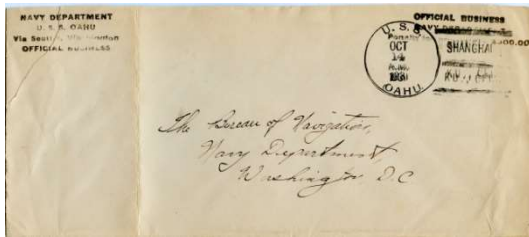 NAVY DEPARTMENT
U. S. S. OAHU
Via Seattle, Washington
OFFICIAL BUSINESS
OFFICIAL BUSINESS
NAVY
$300.00
U. S. S.
OCT
14
A.M.
OAHU
SHANGHAI
The Bureau of Navigation,
Navy Department,
Washington D.C